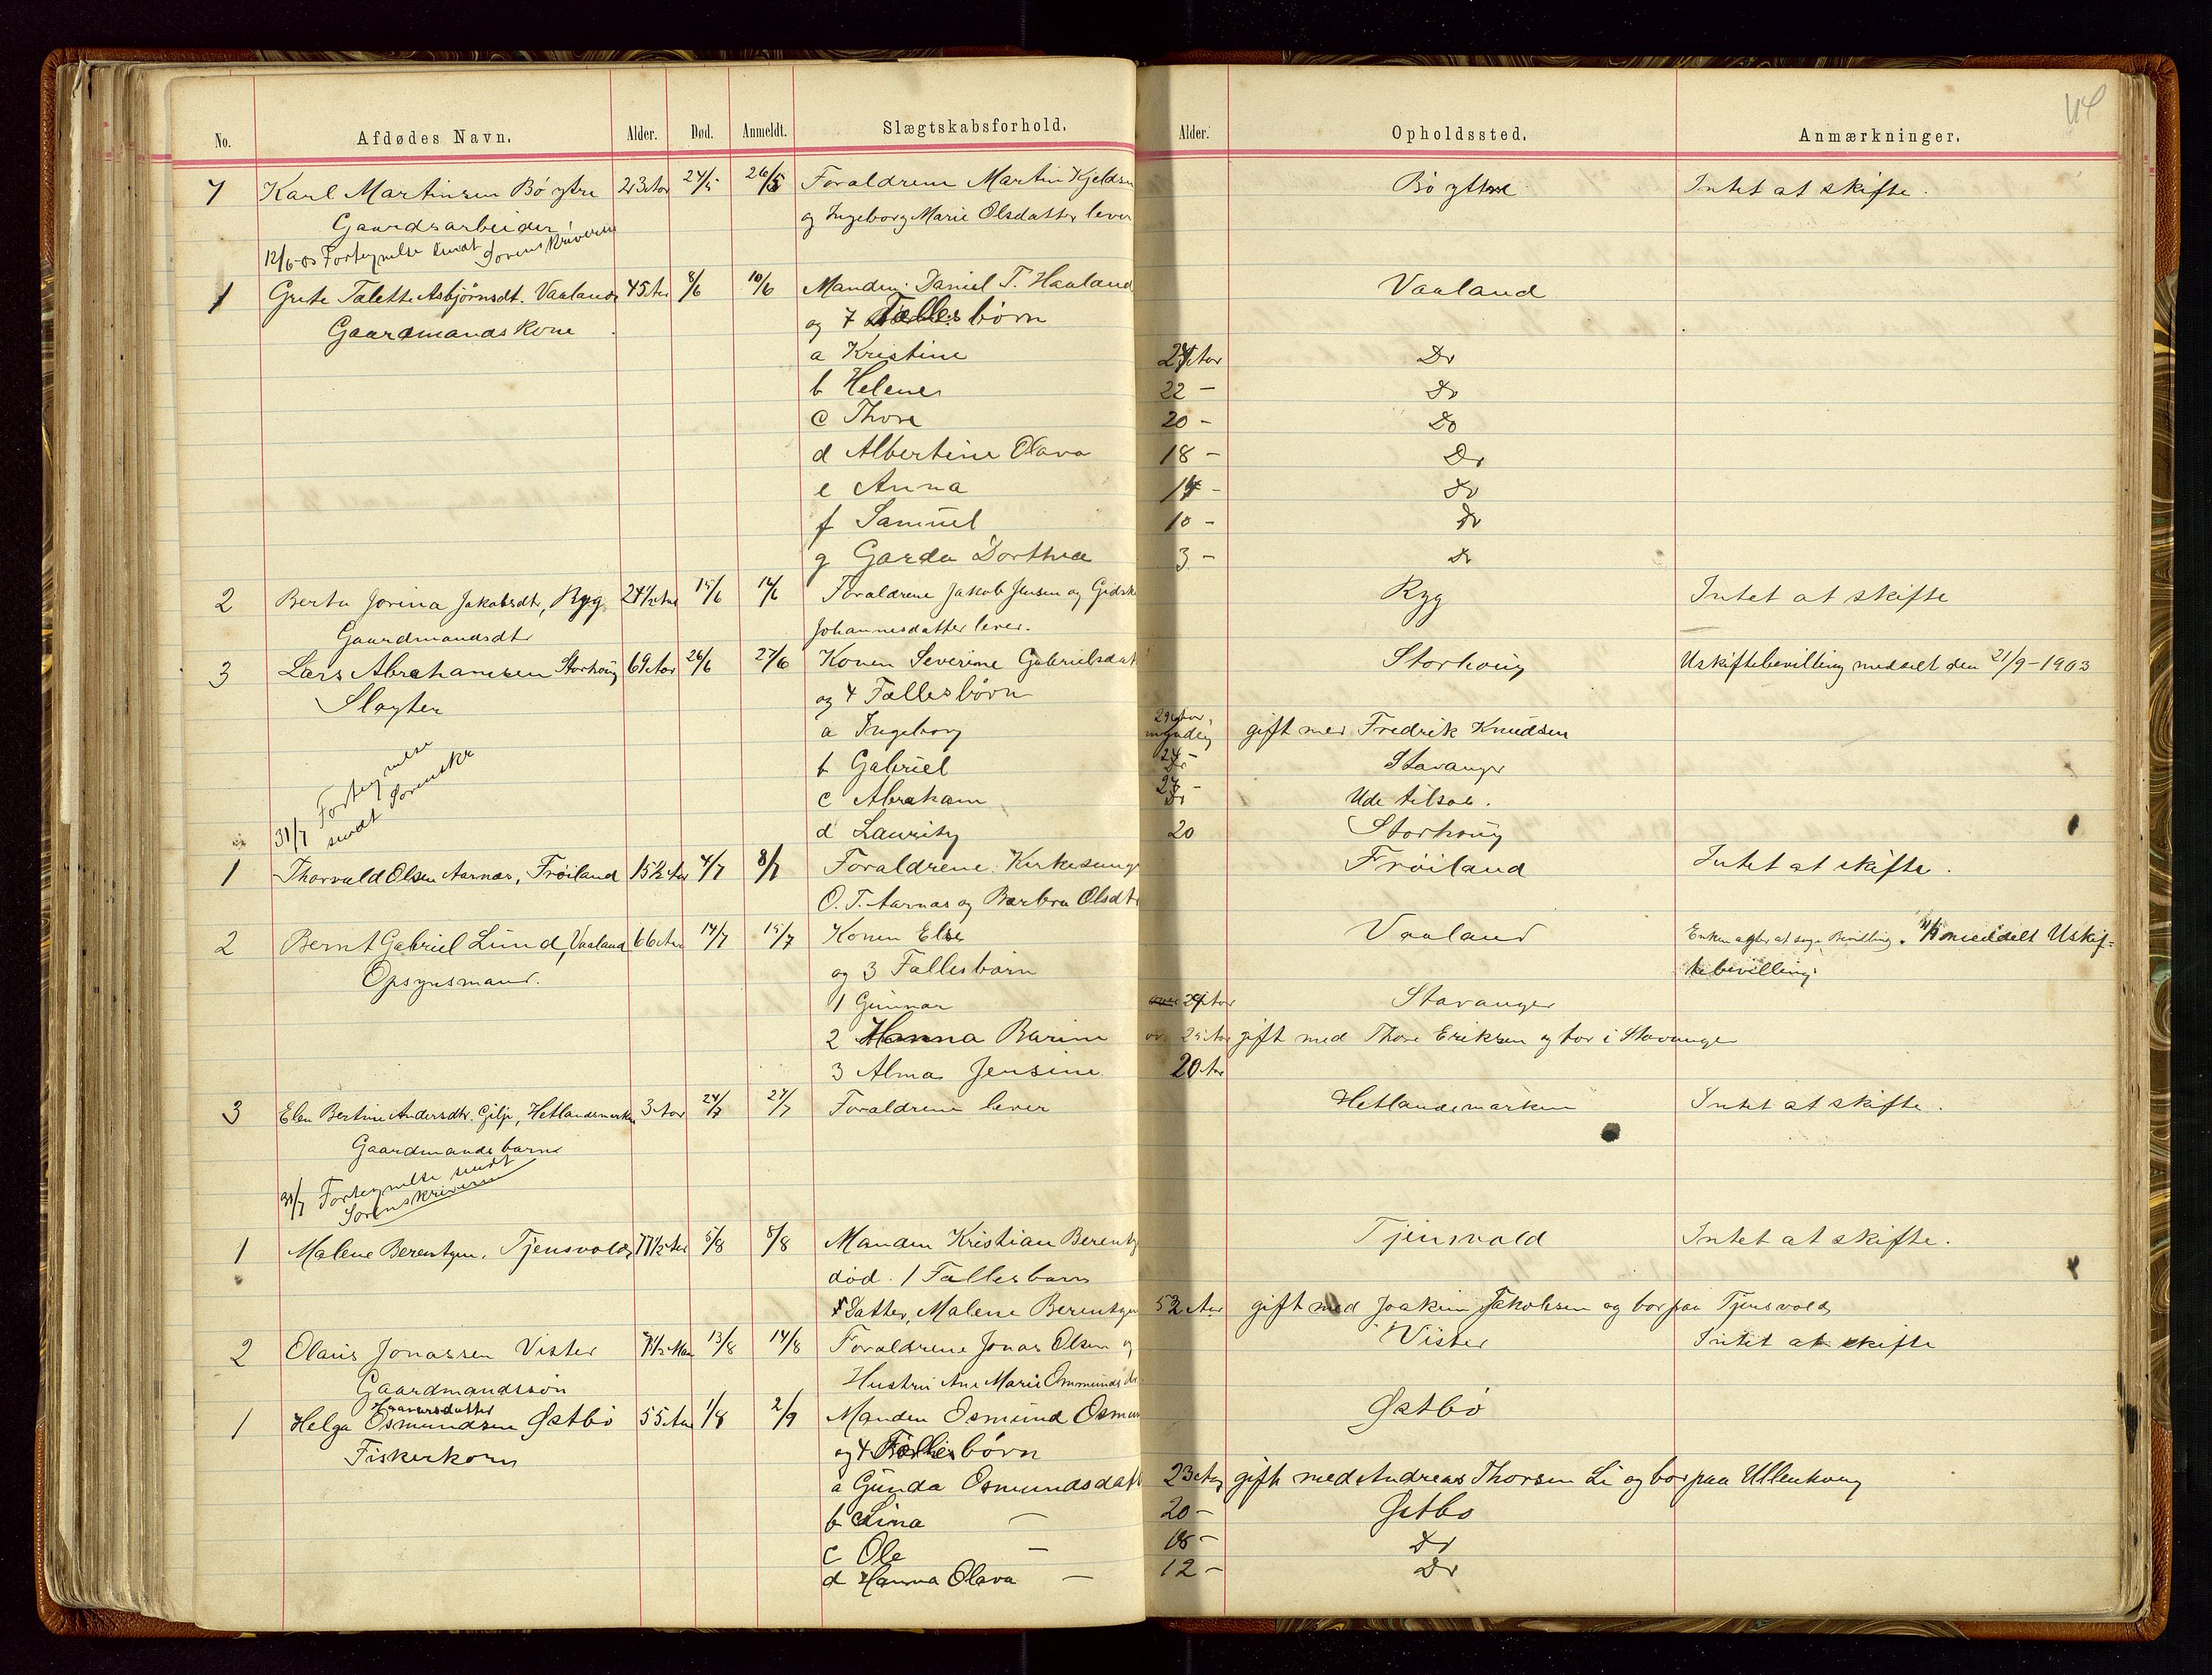 No. Afdødes Navn. Alder. Død. Anmeldt. Slægtskabsforhold. Alder. Opholdssted. Anmærkninger.
7 Karl Martinsen Bø ytre 23 Aar 24/5 26/5 Forældrene Martin Kjeldsen Bø ytre Intet at skifte.
Gaardsarbeider og Ingeborg Marie Olsdatter lever
12/6-03 Fortegnelse sendt Sorenskriveren
1 Grete Talette Asbjørnsdt. Vaaland 45 Aar 8/6 10/6 Manden: Daniel T. Haaland Vaaland
Gaardmandskone og 7 Fællesbørn
a Kristine 24 Aar Do
b Helene 22 - Do
c Thore 20 - Do
d Albertine Olava 18 - Do
e Anna 14 - Do
f Samuel 10 - Do
g Garda Dorthea 3 - Do
2 Berta Jorina Jakobsdt, Ryg 24 1/2 Aar 15/6 16/6 Forældrene Jakob Jensen og Ryg Intet at skifte
Gaardmandsdt Johannesdatter lever.
3 Lars Abrahamsen Storhoug 69 Aar 26/6 27/6 Konen Severine Gabrielsdat Storhoug Uskiftebevilling meddelt den 21/9-1903
Sløyter og 4 Fællesbørn
a Ingeborg 29 Aar, myndig gift med Fredrik Knudsen
b Gabriel Do Stavanger
c Abraham Do Ude tilsøes.
d Lauritz 20 Storhoug
31/7 Fortegnelse
sendt Sorenskr
1 Thorvald Olsen Aarnes, Frøiland 15 1/2 Aar 4/7 8/7 Forældrene: Kirkesanger Frøiland Intet at skifte.
O. T. Aarnes og Barbra Olsdt
2 Bernt Gabriel Lund, Vaaland 66 Aar 14/7 15/7 Konen Else Vaaland Enken agter at søge Bevilling. meddelt Uskif-
Opsynsmand. og 3 Fællesbørn tebevilling.
1 Gunnar 29 Aar Stavanger
2 Hanna Barine 25 Aar gift med Thore Eriksen og bor i Stavanger
3 Alma Jensine 20 Aar
3 Elen Bertine Andersdtr. Gilje, Hetlandsmarken 3 Aar 24/7 27/7 Forældrene lever Hetlandsmarken Intet at skifte.
Gaardmandsbarn
31/7 Fortegnelse sendt
Sorenskriveren
1 Malene Berentzen, Tjensvold 77 1/2 Aar 5/8 8/8 Manden Kristian Berentz Tjensvold Intet at skifte.
død. 1 Fællesbarn
Datter, Malene Berentzen 52 Aar gift med Joakim Jakobsen og bor paa Tjensvold
2 Olaus Jonassen Vister 7 1/2 Mdr 13/8 14/8 Forældrene Jonas Olsen og Vister Intet at skifte
Gaardmandssøn Hustru Ane Marie Ommundsdt
Haaversdatter
1 Helga Osmundsen Østbø 55 Aar 1/8 2/9 Manden Osmund Osmun Østbø
Fiskerkone og 4 Fællesbørn
a Gunda Osmundsdatt 23 Aar gift med Andreas Thorsen Li og bor paa Ullenhoug
b Lina - 20 - Østbø
c Ole - 18 - Do
d Hanna Olava - 12 - Do